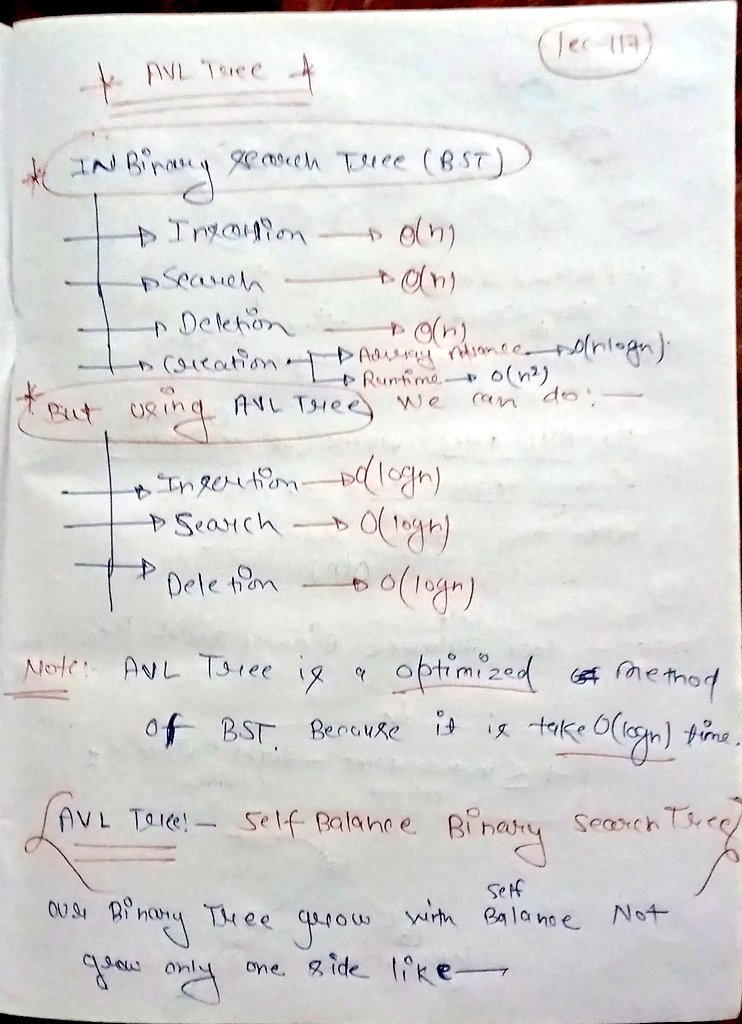 lec-117
* AVL Tree *
* IN Binary Search Tree (BST)
Insertion → O(n)
Search → O(n)
Deletion → O(n)
Creation → O(nlogn)
Runtime → O(n²)
* But using AVL Tree We can do:—
Insertion → O(logn)
Search → O(logn)
Deletion → O(logn)
Note: AVL Tree is a optimized method
of BST. Because it is take O(logn) time.
AVL Tree:- Self Balance Binary Search Tree
our Binary Tree grow with self Balance Not
grow only one side like →